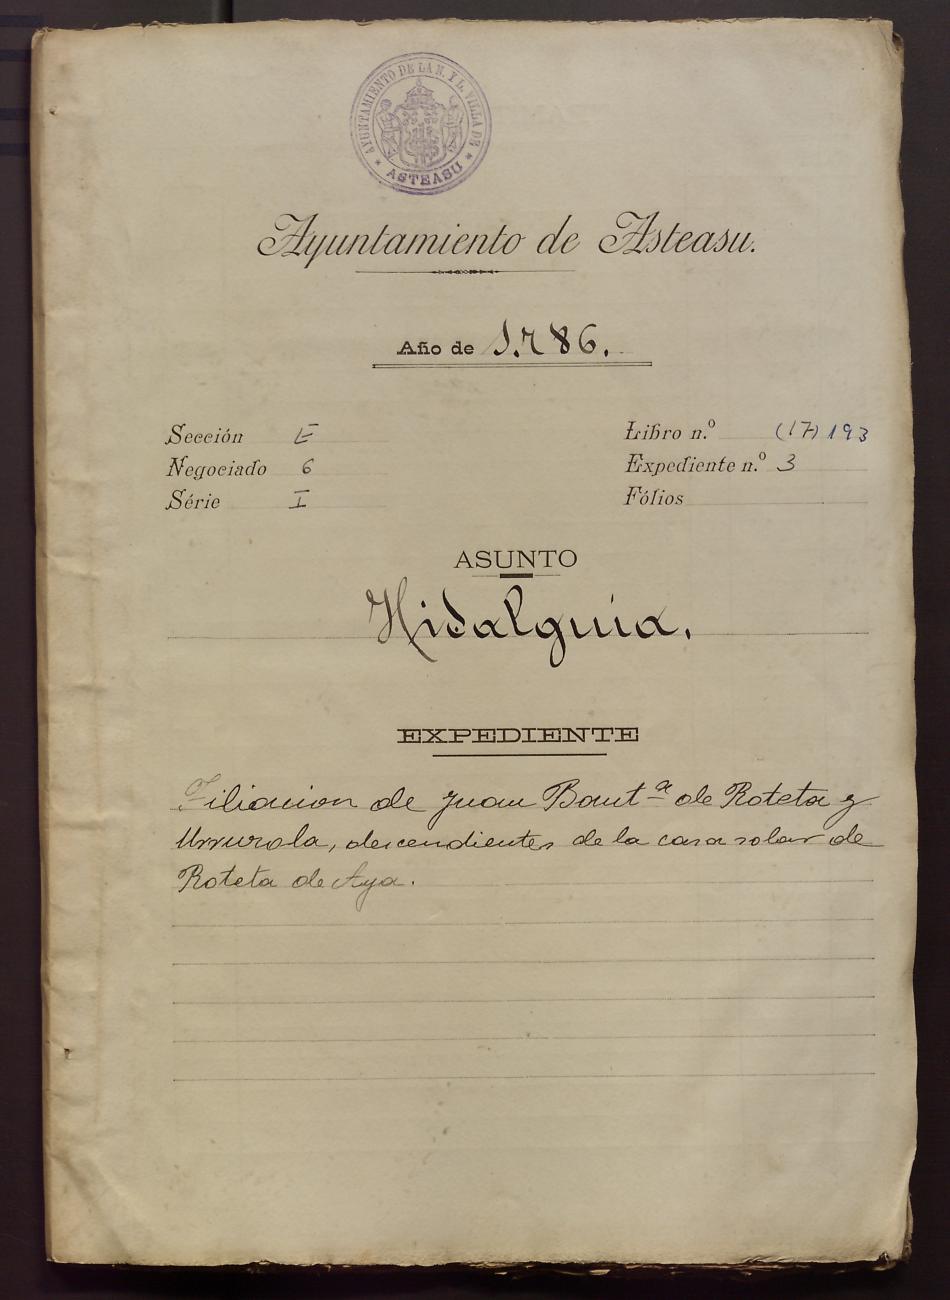 AYUNTAMIENTO DE LA N. Y L. VILLA DE
* ASTEASU *
Ayuntamiento de Asteasu.
Año de 1.786.
Sección E
Libro n.º (17) 193
Negociado 6
Expediente n.º 3
Série I
Fólios
ASUNTO
Hidalguia.
EXPEDIENTE
Filiacion de Juan Baut.ª de Roteta y
Urrurola, descendientes de la casa solar de
Roteta de Aya.